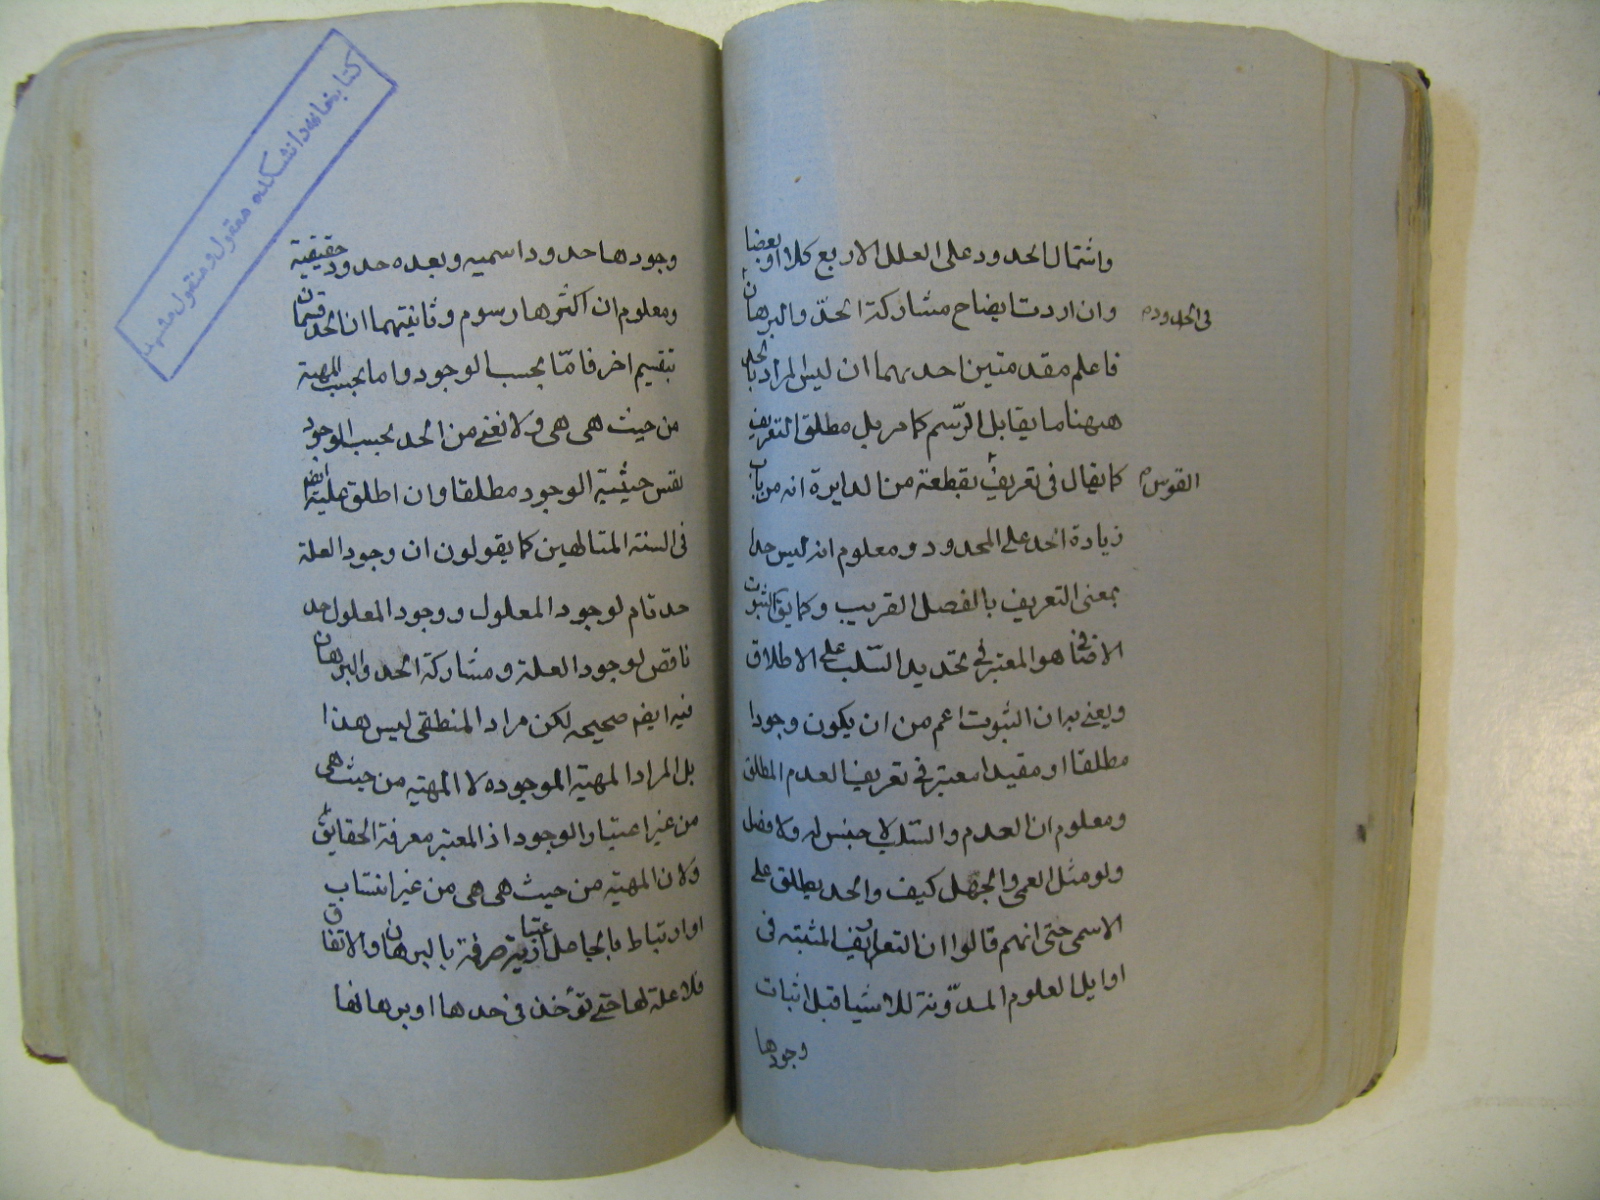 واشتمال الحدود على العلل الاربع كلا او بعضا
وان اردت ايضاح مشاركة الحدّ والبرهان
فى الحدود م
فاعلم مقدمتين احديهما ان ليس المراد بالحد
ههنا ما يقابل الرّسم كما مر بل مطلق التعريف
كما يقال فى تعريف بقطعة من الدايرة انه من باب
القوس م
زيادة الحد على المحدود ومعلوم انه ليس حدا
بمعنى التعريف بالفصل القريب وكما يق الثبوت
الاضافى هو المعتبر فى تحديد السّلب على الاطلاق
ويعنى به ان الثبوت اعم من ان يكون وجودا
مطلقا او مقيدا معتبر فى تعريف العدم المطلق
ومعلوم ان العدم والسّلب لا جنس له ولا فصل
ولو مثل العمى والجهل كيف والحد يطلق على
الاسمى حتى انهم قالوا ان التعاريف المثبته فى
اوايل العلوم المدوّنة للاشيا قبل اثبات
وجودها
وجودها حدود اسميه وبعده حدود حقيقية
ومعلوم ان اكثرها رسوم وثانيتهما ان الحد قسمان
بتقسيم اخر فامّا بحسب الوجود واما بحسب المهية
من حيث هى هى ولا نعنى من الحد بحسب الوجود
نفس حيثية الوجود مطلقا وان اطلق عليه ايضا
فى السنة المتالهين كما يقولون ان وجود العلة
حد تام لوجود المعلول ووجود المعلول حد
ناقص لوجود العلة ومشاركة الحد والبرهان
فيه ايضم صحيحه لكن مراد المنطقى ليس هذا
بل المراد المهية الموجوده لا المهيه من حيث هى
من غير اعتبار الوجود اذ المعتبر معرفة الحقايق
ولان المهيه من حيث هى هى من غير انتساب
او ارتباط بالجاعل اعتبارية صرفة بالبرهان والاتفاق
فلا علة لها حتى تؤخذ فى حدها او برهانها
كتابخانه دانشكده معقول و منقول مشهد